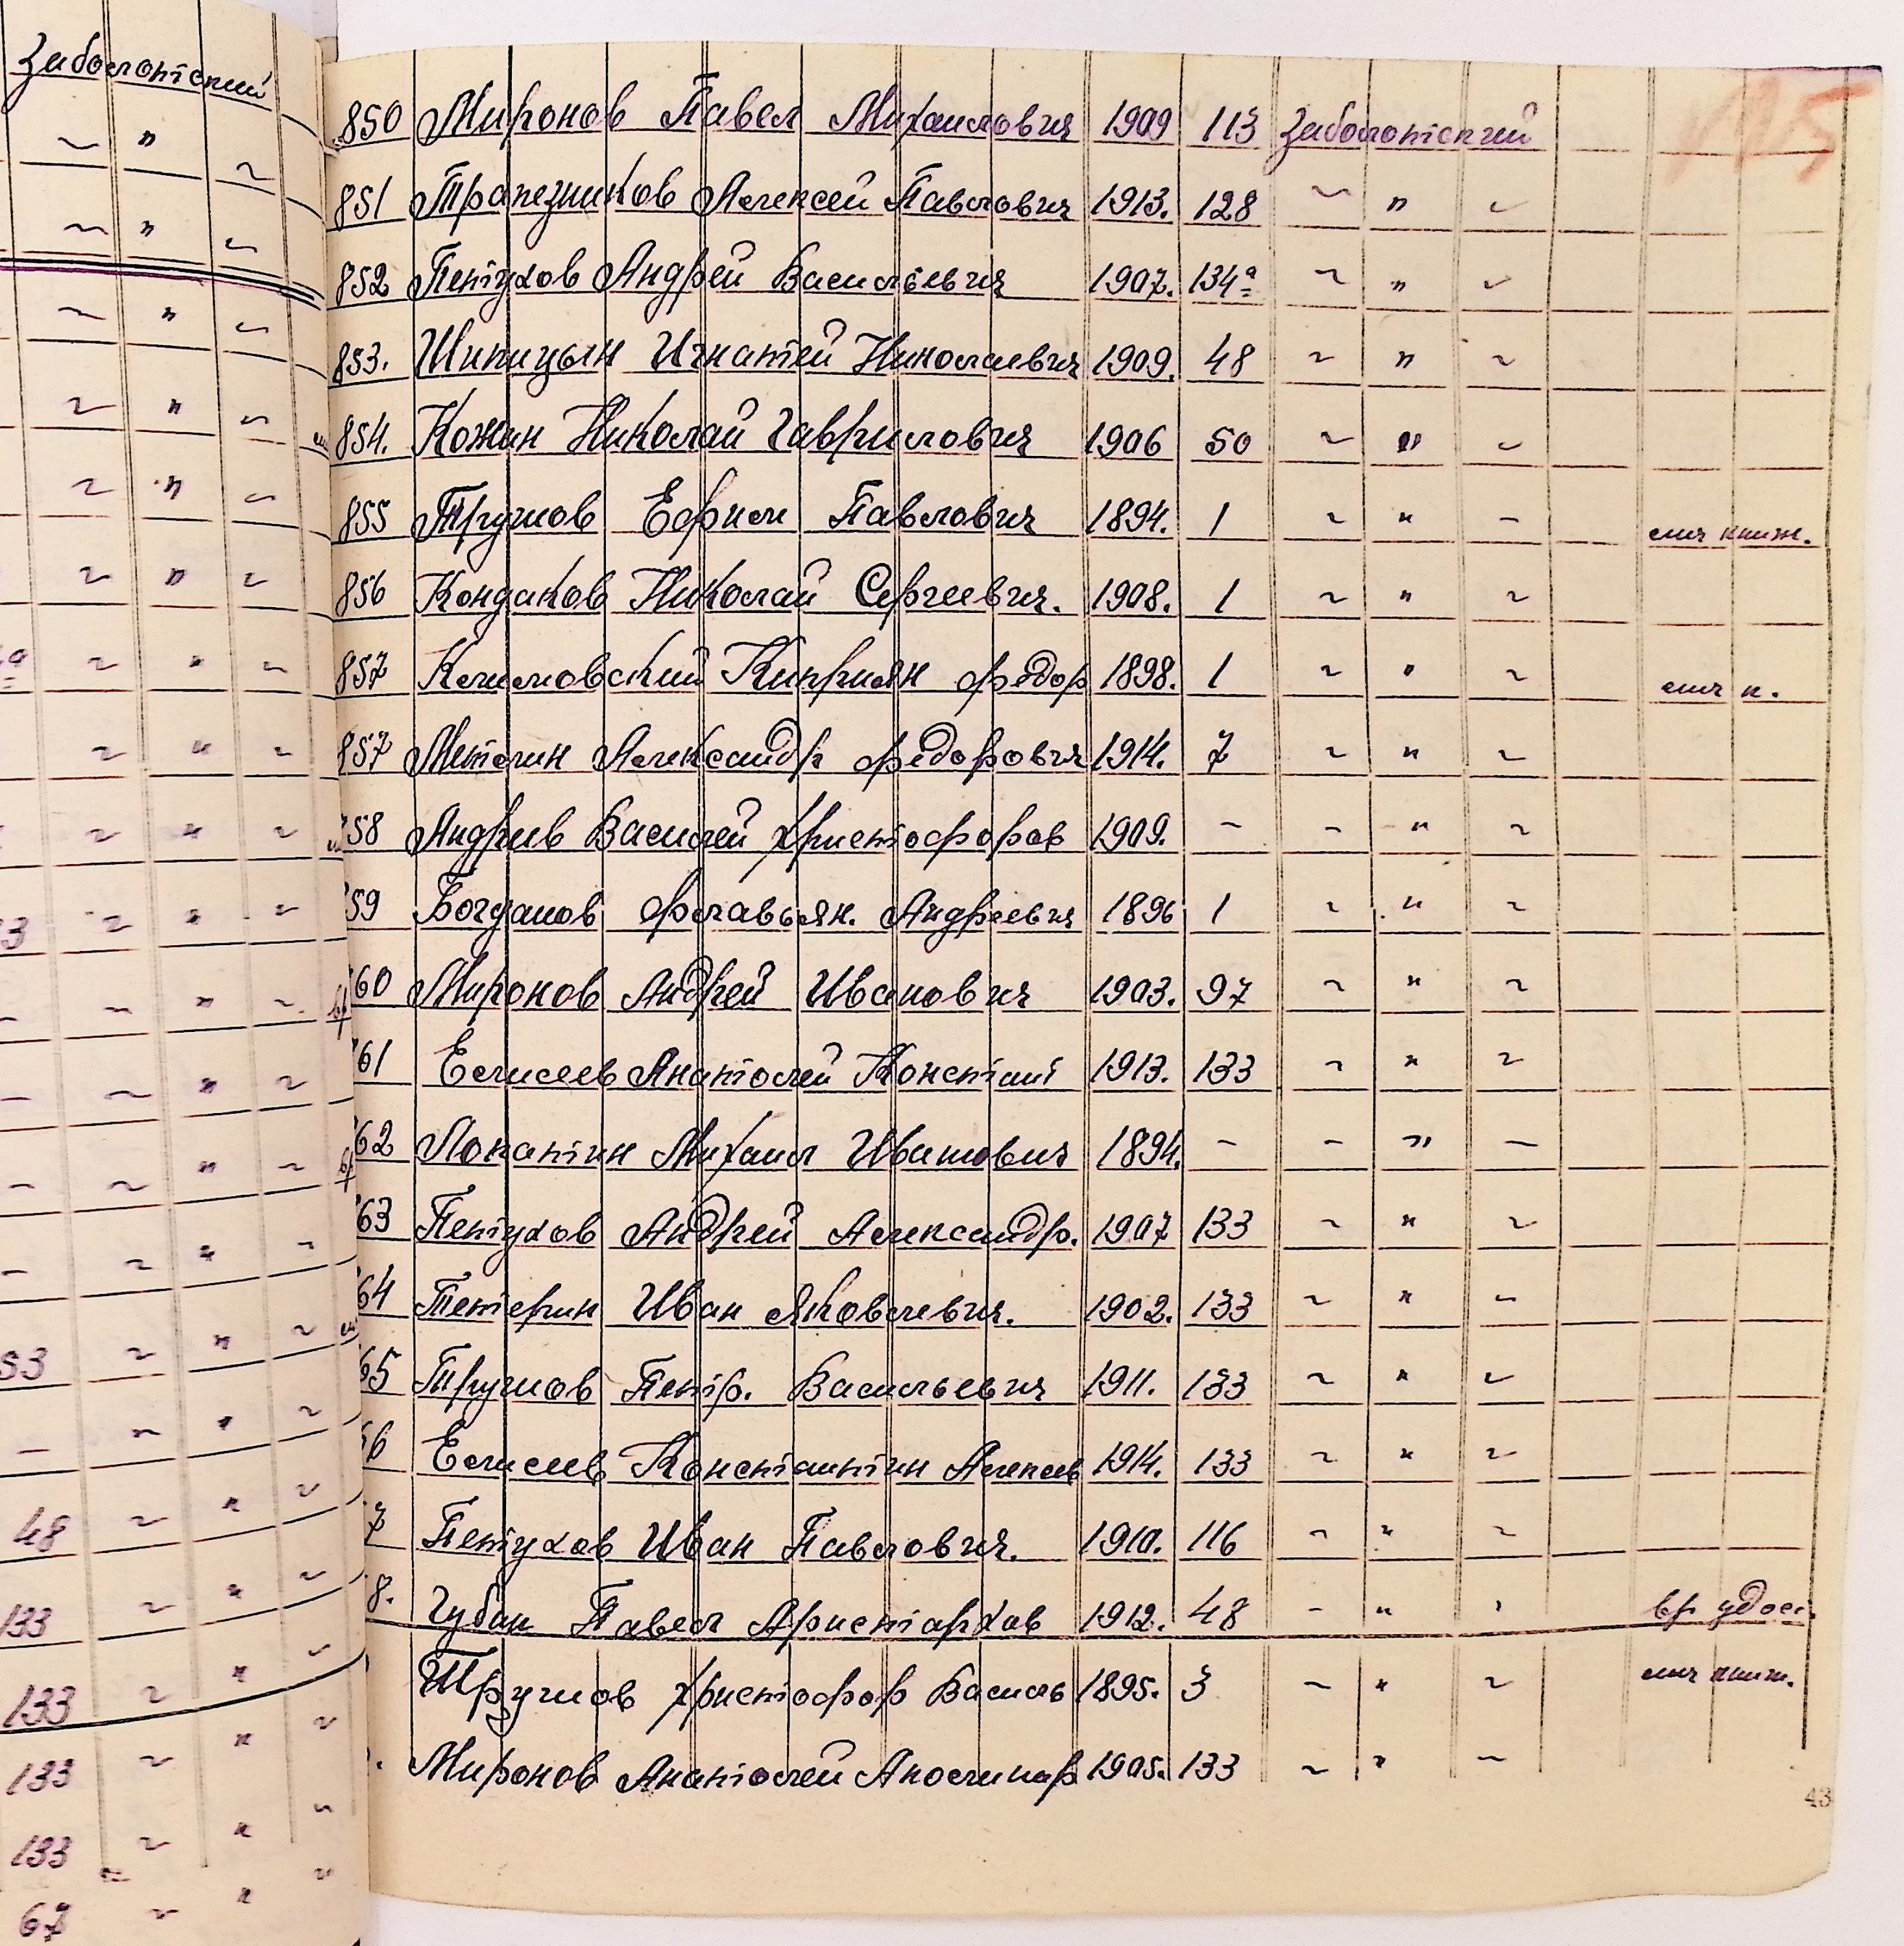 Заболотский
~ " ~
~ " ~
~ " ~
~ " ~
~ " ~
~ " ~
~ " ~
~ " ~
~ " ~
3 ~ " ~
- ~ " ~
- ~ " ~
- ~ " ~
- ~ " ~
53 ~ " ~
- ~ " ~
48 ~ " ~
133 ~ " ~
133 ~ " ~
133 ~ " ~
133 ~ " ~
67 ~ " ~
115
850 Миронов Павел Михаилович 1909 113 Заболотский
851 Трапезников Алексей Павлович 1913. 128 ~ " ~
852 Петухов Андрей Васильевич 1907. 134а ~ " ~
853. Шипицын Игнатей Николаевич 1909. 48 ~ " ~
854. Кожин Николай Гаврилович 1906 50 ~ " ~
855 Трушов Ефим Павлович 1894. 1 ~ " - спч книж.
856 Кондаков Николай Сергеевич. 1908. 1 ~ " ~
857 Климовский Киприян Федор 1898. 1 ~ " ~ спч к.
857 Метелин Александр Федорович 1914. 7 ~ " ~
58 Андреев Василей Христофоров 1909. - - " ~
59 Богданов Флавьян. Андреевич 1896 1 ~ " ~
60 Миронов Андрей Иванович 1903. 97 ~ " ~
61 Елисеев Анатолей Констант 1913. 133 ~ " ~
62 Лопатин Михаил Иванович 1894. - - " -
63 Петухов Андрей Александр. 1907 133 ~ " ~
64 Тетерин Иван Яковлевич. 1902. 133 ~ " ~
65 Трушов Петр. Васильевич 1911. 133 ~ " ~
66 Елисеев Константин Алексеев 1914. 133 ~ " ~
7 Петухов Иван Павлович. 1910. 116 ~ " ~
8. Губин Павел Аристархов 1912. 48 - " ' вр. удос.
Трушов Христофор Василь 1895. 3 ~ " ~ спч книж.
. Миронов Анатолей Аполинар 1905. 133 ~ " ~
43